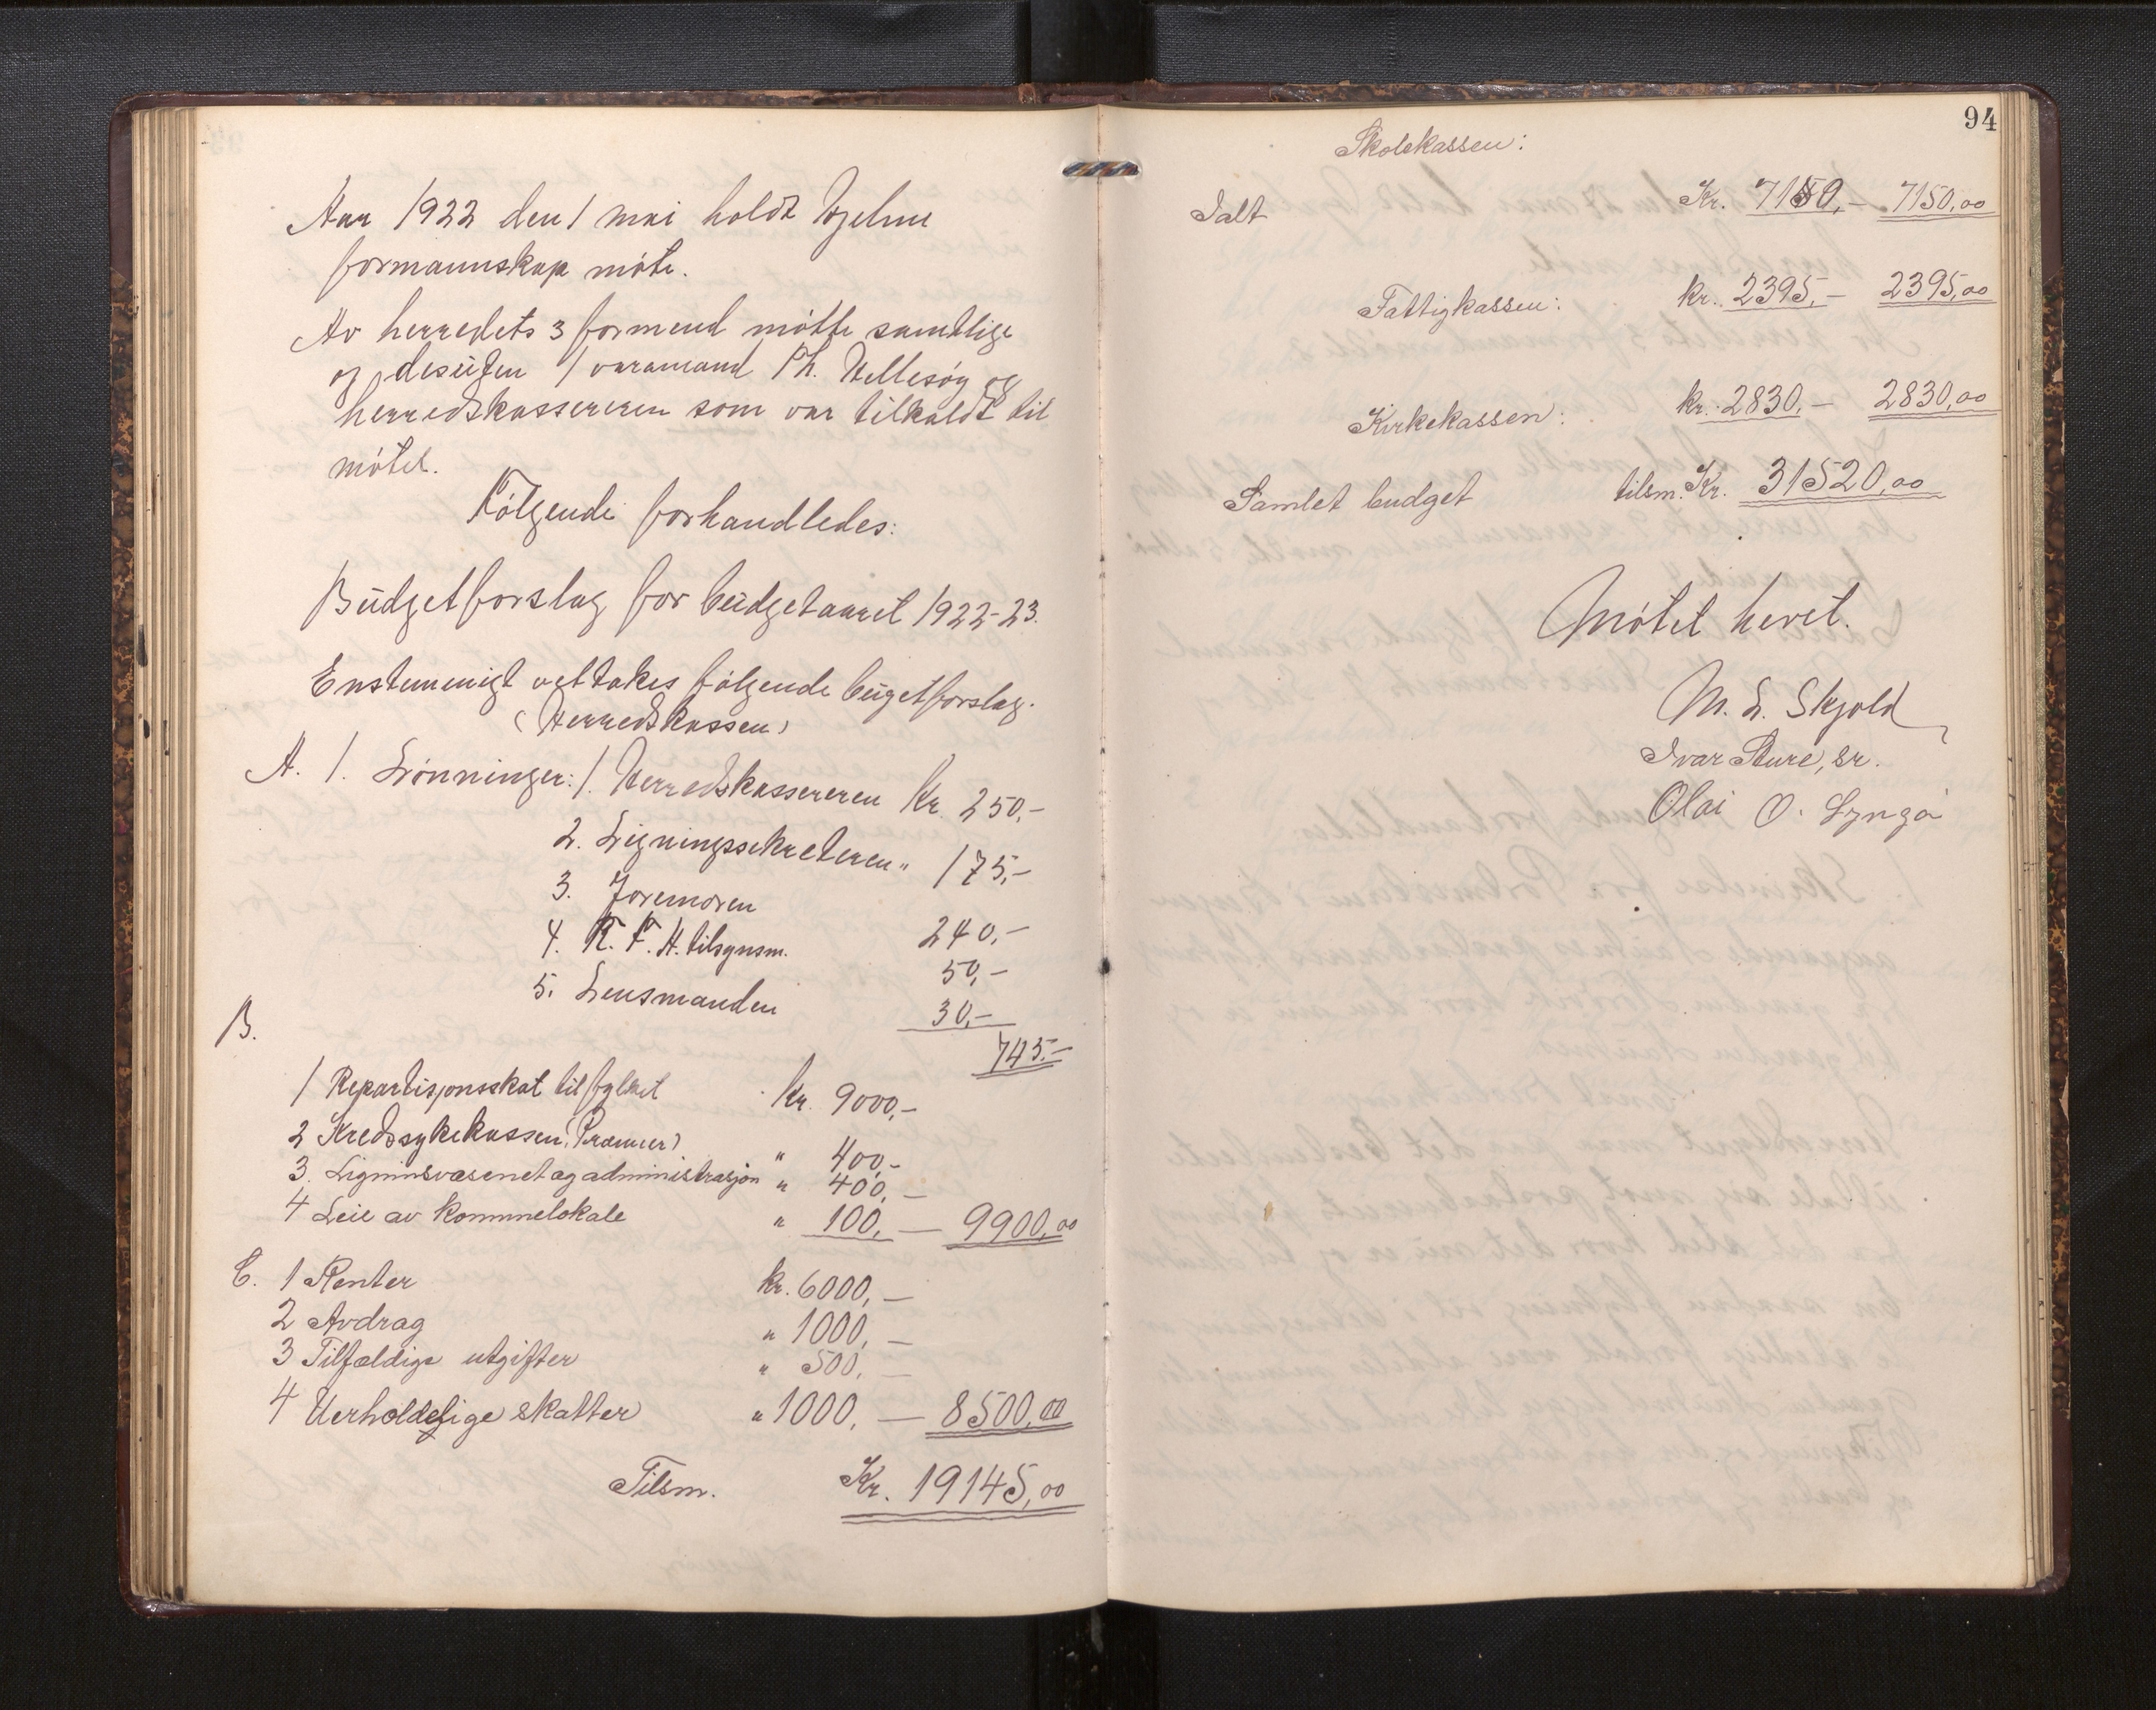 Aar 1922 den 1 mai holdt Hjelme
formannskap møte.
Av herredets 3 formend møtte samtlige
og desuten 1 varamand Th. Hellesøy og
herredskassereren som var tilkaldt til
møtet.
Følgende forhandledes:
Budgetforslag for budgetaaret 1922-23.
Enstemmigt vettokes følgende bugetforslag.
(Herredskassen)
A. 1. Lønninger: 1. Herredskassereren Kr. 250,-
2. Ligningssekreteren " 175,-
3. Joremoren 240,-
4. R. F. H. tilsynsm. 50,-
5. Lensmanden 30,-
745.-
B.
1 Repartisjonsskat til fylket Kr. 9000,-
2 Kredssykekassen (Præmier) " 400,-
3. Ligninsvæsenet og administrasjon " 400,-
4 Leie av kommnelokale " 100,- 9900,00
C. 1 Renter kr. 6000,-
2 Avdrag " 1000,-
3 Tilfældige utgifter " 500,-
4 Uerholdelige skatter " 1000,- 8500,00
Tilsm. Kr. 19145,00
94
Skolekassen:
Ialt Kr. 7150,- 7150,00
Fattigkassen: kr. 2395,- 2395,00
Kirkekassen: kr. 2830,- 2830,00
Samlet budget tilsm. Kr. 31520,00
Møtet hevet.
M. L. Skjold
Ivar Sture, sr.
Olai O. Lyngø